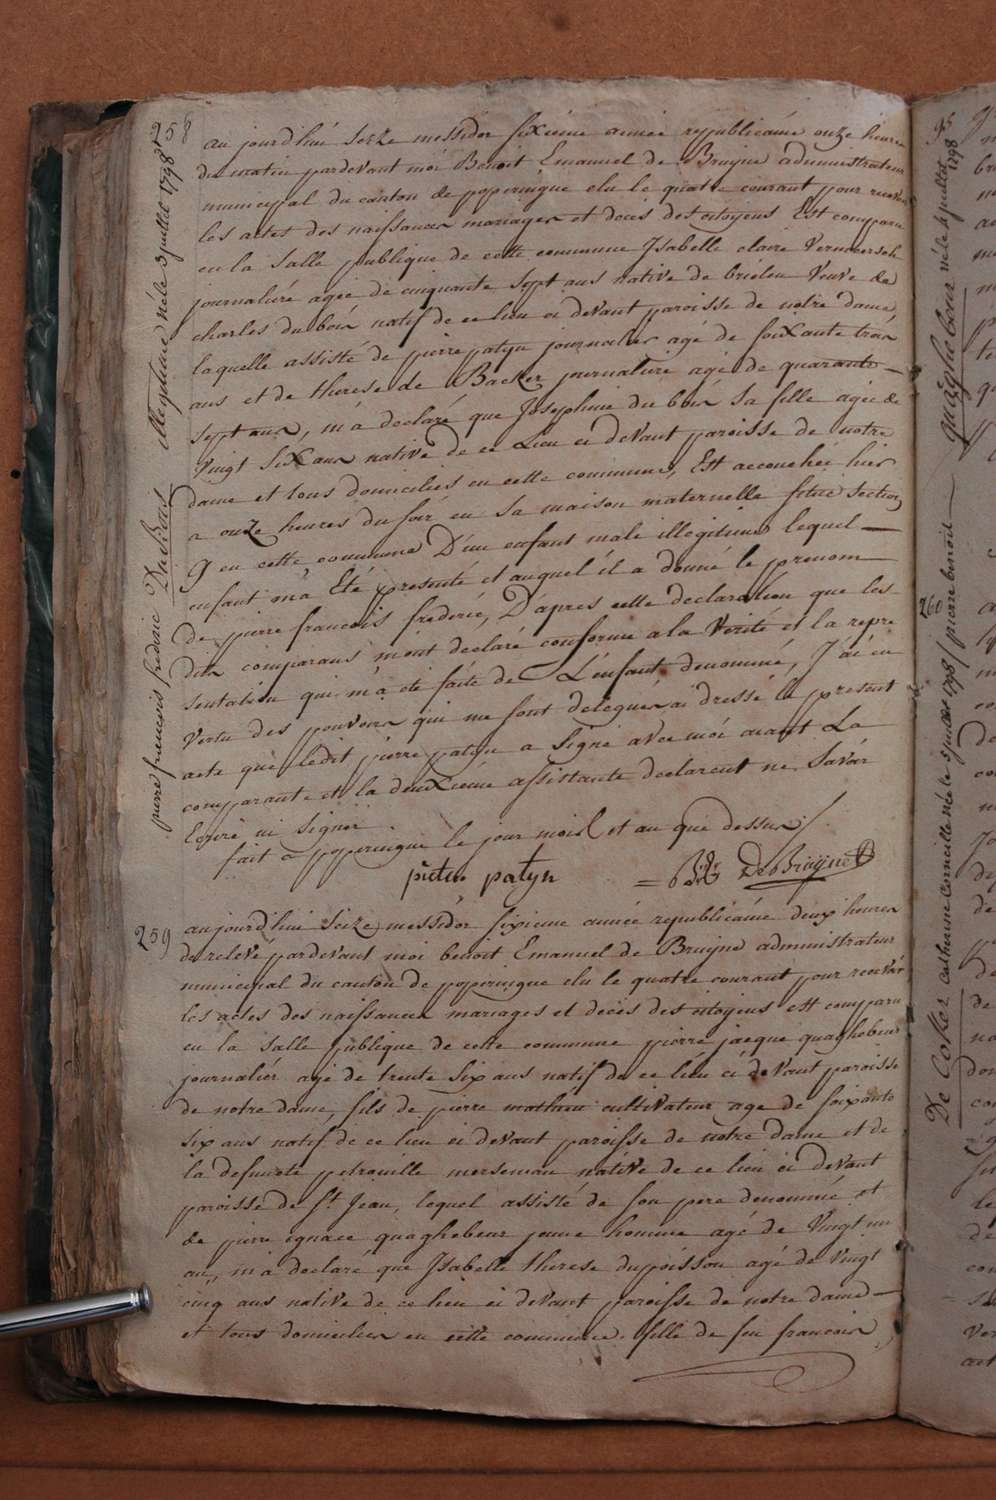 258
pierre francois frederic Du Bois illegitime né le 3 juillet 1798
au jourd'hui seize messidor sixième année republicaine onze heures
du matin pardevant moi Benoit Emanuel de Bruijne administrateur
municipal du canton de poperingue elu le quatre courant pour recevoir
les actes des naissances mariages et decès des citoyens Est comparu
en la salle publique de cette commune Isabelle claire Vermeersch
journalière agée de cinquante sept ans native de brielen veuve de
charles du bois natif de ce lieu ci devant paroisse de notre dame,
laquelle assisté de pierre patyn journalier agé de soixante trois
ans et de therese de Backer journalière agé de quarante —
sept ans, m'a declaré que Josephine du bois sa fille agée de
vingt six ans native de ce Lieu ci devant paroisse de notre
dame et tous domiciliés en cette commune, Est accouchée hier
a onze heures du soir en sa maison maternelle section
g en cette commune D'un enfant male illegitime lequel —
enfant m'a Eté presenté et auquel il a donné le prenom
de pierre francois frederic, D'apres cette declaration que les
dits comparans m'ont declaré conforme a la verité et la repre
sentation qui m'a eté faite de L'enfant denommé, J'ai en
vertu des pouvoirs qui me sont delegués ai dressé le present
acte que ledit pierre patyn a signé avec moi aiant La
comparante et la deuxieme assistante declarent ne savoir
Ecrire ni signer.
fait a poperingue le jour mois et an que dessus /.
pieter patyn = b E De Bruijne
259
aujourd'hui seize messidor sixieme année republicaine deux heures
de relevé pardevant moi benoit Emanuel de Bruijne administrateur
municipal du canton de poperingue elu le quatre courant pour recevoir
les actes des naissances mariages et decès des citoyens est comparu
en la salle publique de cette commune pierre jacque quaghebeur
journalier agé de trente six ans natif de ce lieu ci devant paroisse
de notre dame, fils de pierre mathieu cultivateur age de soixante
six ans natif de ce lieu ci devant paroisse de notre dame et de
la defuncte petronille merseman native de ce lieu ci devant
paroisse de St Jean, lequel assisté de son pere denommé et
de pierre ignace quaghebeur jeune homme agé de vingt un
an, m'a declaré que Isabelle therese dupoisson agé de vingt
cinq ans native de ce lieu ci devant paroisse de notre dame —
et tous domiciliés en cette commune. fille de feu francois
quaghebeur né le 4 juillet 1798
260
De Coker catharine corneille née le 3 juillet 1798 / pierre benoit —